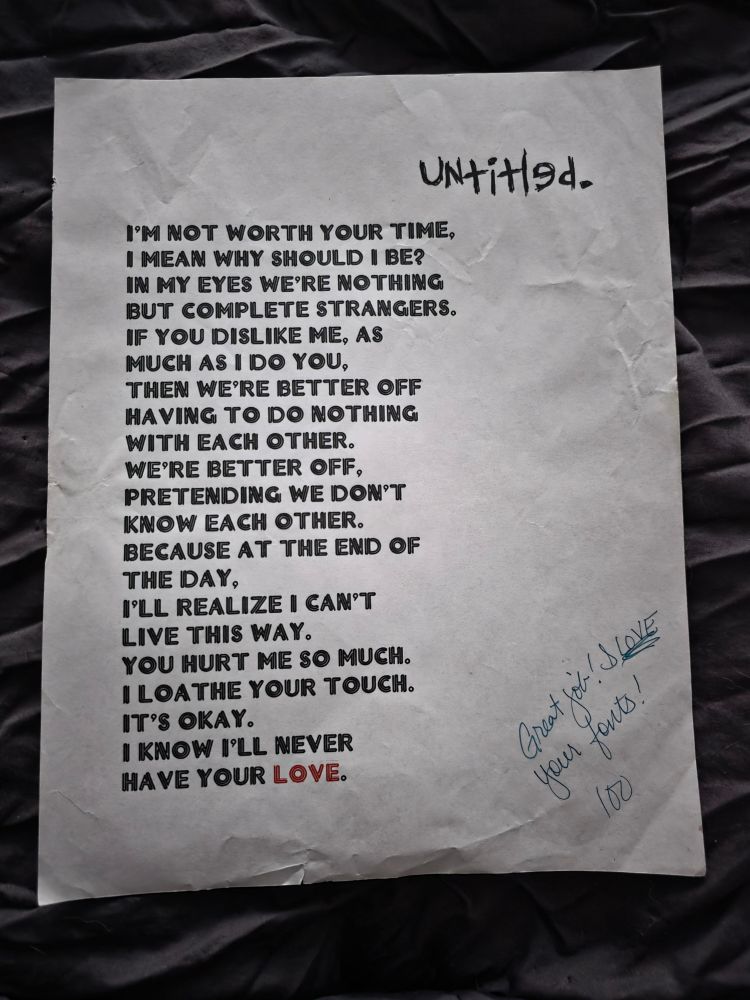 Untitled.
I'M NOT WORTH YOUR TIME,
I MEAN WHY SHOULD I BE?
IN MY EYES WE'RE NOTHING
BUT COMPLETE STRANGERS.
IF YOU DISLIKE ME, AS
MUCH AS I DO YOU,
THEN WE'RE BETTER OFF
HAVING TO DO NOTHING
WITH EACH OTHER.
WE'RE BETTER OFF,
PRETENDING WE DON'T
KNOW EACH OTHER.
BECAUSE AT THE END OF
THE DAY,
I'LL REALIZE I CAN'T
LIVE THIS WAY.
YOU HURT ME SO MUCH.
I LOATHE YOUR TOUCH.
IT'S OKAY.
I KNOW I'LL NEVER
HAVE YOUR LOVE.
Great job! I LOVE
your fonts!
100